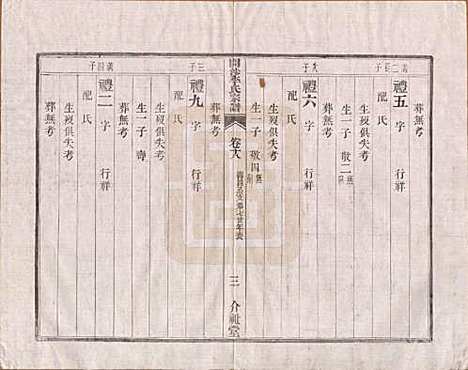 禮五 字 行祥
配氏
生歿俱失考
生一子 敬二
葬無考
禮六 字 行祥
配氏
生歿俱失考
生一子 敬四
葬無考
李氏宗譜
卷六
三 介祉堂
三子
禮九 字 行祥
配氏
生歿俱失考
生一子 壽
葬無考
禮二 字 行祥
配氏
生歿俱失考
葬無考